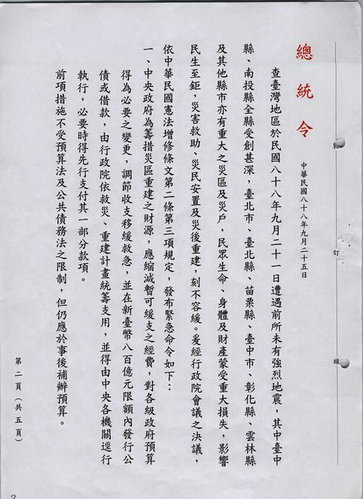 總統令
中華民國八十八年九月二十五日
查臺灣地區於民國八十八年九月二十一日遭遇前所未有強烈地震，其中臺中
縣、南投縣全縣受創甚深，臺北市、臺北縣、苗栗縣、臺中市、彰化縣、雲林縣
及其他縣市亦有重大之災區及災戶，民眾生命、身體及財產蒙受重大損失，影響
民生至鉅，災害救助、災民安置及災後重建，刻不容緩。爰經行政院會議之決議，
依中華民國憲法增修條文第二條第三項規定，發布緊急命令如下：
一、中央政府為籌措災區重建之財源，應縮減暫可緩支之經費，對各級政府預算
得為必要之變更，調節收支移緩救急，並在新臺幣八百億元限額內發行公
債或借款，由行政院依救災、重建計畫統籌支用，並得由中央各機關逕行
執行，必要時得先行支付其一部分款項。
前項措施不受預算法及公共債務法之限制，但仍應於事後補辦預算。
第二頁（共五頁）
訂
線